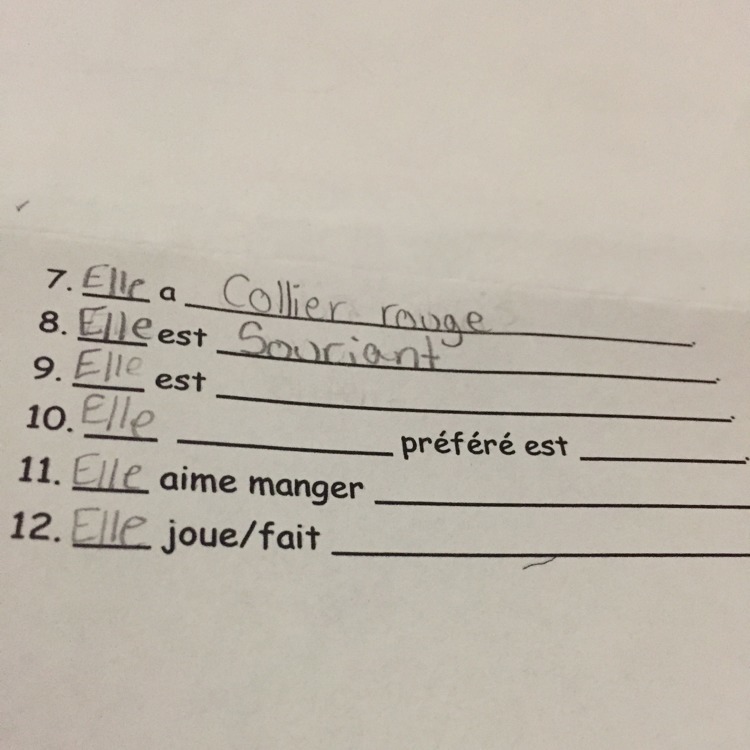 7. Elle a Collier rouge.
8. Elle est Souriant.
9. Elle est .
10. Elle préféré est .
11. Elle aime manger
12. Elle joue/fait